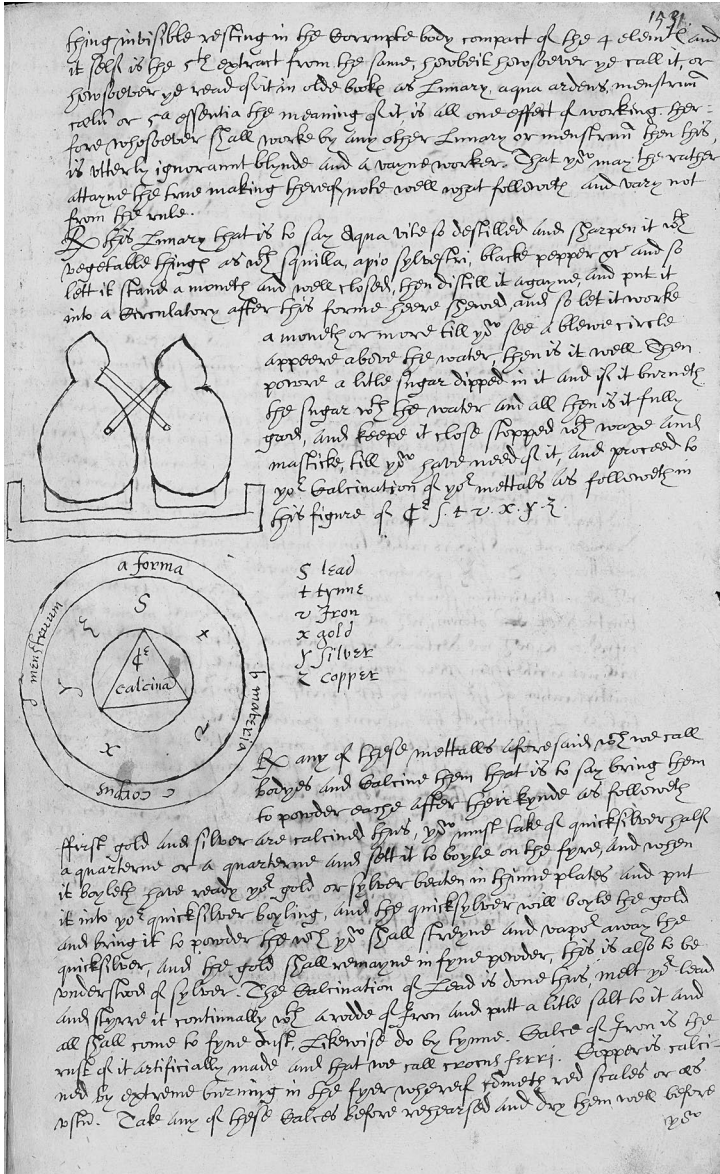 153
thing invisible resting in the Corrupte body compact of the 4 elemtℯ and
it self is the 5th extract from the same, howbeit howsoever ye call it, or
howsoever ye read of it in olde bookℯ as Lunary, aqua ardens, menstruū
cælū or 5a essentia the meaning of it is all one effect of working. Her-
fore whosoever shall worke by any other Lunary or menstruū then this,
is utterly ignorannt blynde and a vayne worker. That yow may the rather
attayne the true making hereof note well what followeth and vary not
from the rule.
℞ this Lunary that is to say Aqua vite so destilled and sharpen it wth
vegetable thingℯ as wth squilla, apio sylvestri, blacke pepper &c and so
lett it stand a moneth and well closed, then distill it agayne, and put it
into a Circulatory after this forme heere shewed, and so let it worke
a moneth or more till yow see a blewe circle
appeere above the water, then is it well. Then
powre a litle sugar dipped in it and if it burneth
the sugar wth the water and all then is it fully
good, and keepe it close stopped wth waxe and
masticke, till yow have need of it, and proceed to
yor Calcination of yor mettalls as followeth in
this figure of S. t. v. x. y. z.
a forma
b materia
c corpus
d menstruum
S
t
v
x
y
z
calcinā
S lead
t tynne
v Iron
x gold
y Silver
z copper
℞ any of these mettalls aforesaid wch we call
bodyes and Calcine them that is to say bring them
to powder eache after their kynde as followeth
ffirst gold and silver are calcined thus, yow must take of quicksilver half
a quarterne or a quarterne and sett it to boyle on the fyre, and when
it boyleth have ready yor gold or sylver beaten in thinne plates and put
it into yor quicksilver boyling, and the quicksylver will boyle the gold
and bring it to powder the wch yow shall streyne and vapor away the
quicksilver, and the gold shall remayne in fyne powder, this is also to be
understood of sylver. The Calcination of Lead is done thus, melt yor lead
and styrre it continually wth a rodde of Iron and putt a litle salt to it and
all shall come to fyne dust, Likewise do by tynne. Calce of Iron is the
rust of it artificially made and that we call crocus ferri. Copper is calci-
ned by extreme burning in the fyer whereof cometh red scales or æs
ustū. Take any of these Calces before rehearsed and dry them well before
yow